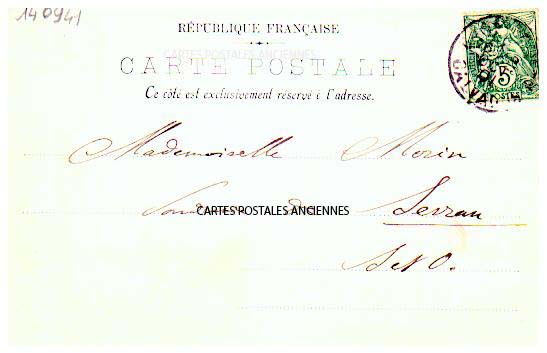 140941
RÉPUBLIQUE FRANÇAISE
CARTES POSTALES ANCIENNES
CARTE POSTALE
Ce côté est exclusivement réservé à l'adresse.
5
Mademoiselle Morin
CARTES POSTALES ANCIENNES
Sevran
S et O.